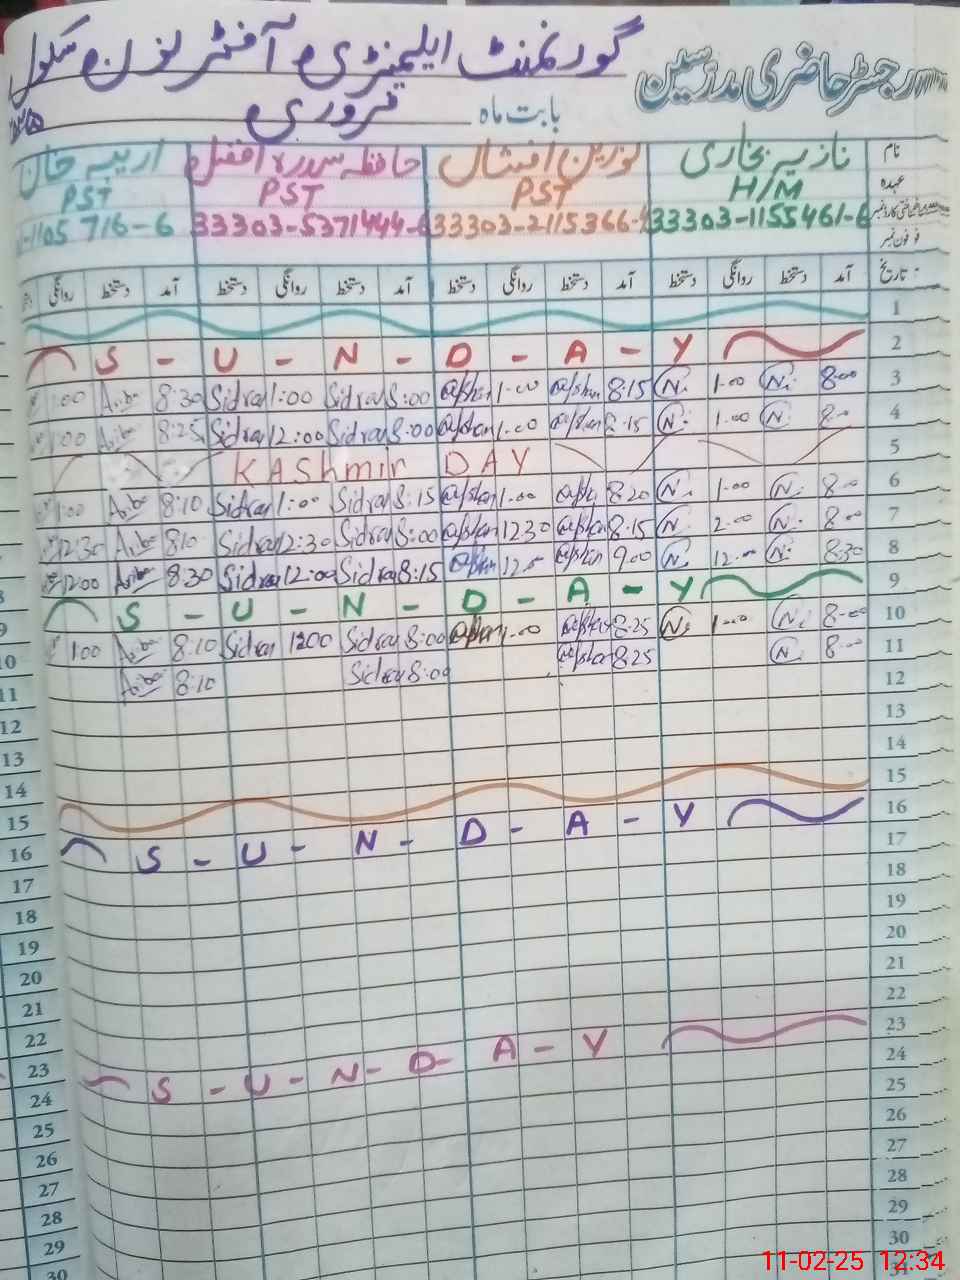 رجسٹر حاضری مدرسین گورنمنٹ ایلیمنٹری آفٹر نون سکول
بابت ماہ فروری
نام نازیہ بخاری نورین افشاں حافظہ سدرہ افضل اریبہ خان
عہدہ H/M PST PST PST
33303-1155461-6 33303-2115366- 33303-5371444-6 -1105716-6
فون نمبر
تاریخ آمد دستخط روانگی دستخط آمد دستخط روانگی دستخط آمد دستخط روانگی دستخط آمد دستخط روانگی
1
S - U - N - D - A - Y 2
1:00 Ariba 8:30 Sidra 1:00 Sidra 8:00 Afshan 1.00 Afshan 8:15 N. 1.00 N. 8:00 3
1:00 Ariba 8:25 Sidra 12:00 Sidra 8:00 Afshan 1.00 Afshan 8:15 N. 1.00 N. 8:00 4
KAShmir DAY 5
1:00 Ariba 8:10 Sidra 1:00 Sidra 8:15 Afshan 1.00 Afshan 8:20 N. 1.00 N. 8:00 6
12:30 Ariba 8:10 Sidra 12:30 Sidra 8:00 Afshan 12.30 Afshan 8:15 N. 2.00 N. 8:00 7
12:00 Ariba 8:30 Sidra 12:00 Sidra 8:15 Afshan 12.00 Afshan 9.00 N. 12.00 N. 8:30 8
S - U - N - D - A - Y 9
100 Ariba 8:10 Sidra 1200 Sidra 8:00 Afshan 1.00 Afshan 8:25 N. 1.00 N. 8:00 10
Ariba 8:10 Sidra 8:00 Afshan 8:25 N. 8:00 11
12
13
14
15
S - U - N - D - A - Y 16
17
18
19
20
21
22
S - U - N - D - A - Y 23
24
25
26
27
28
29
30
31
9
10
11
12
13
14
15
16
17
18
19
20
21
22
23
24
25
26
27
28
29
30
11-02-25 12:34